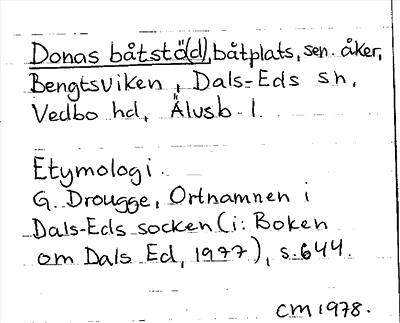 Donas båtstä(d), båtplats, sen. åker,
Bengtsviken, Dals-Eds sn,
Vedbo hd, Älvsb. l.
Etymologi.
G. Drougge, Ortnamnen i
Dals-Eds socken (i: Boken
om Dals Ed, 1977), s. 644.
CM 1978.